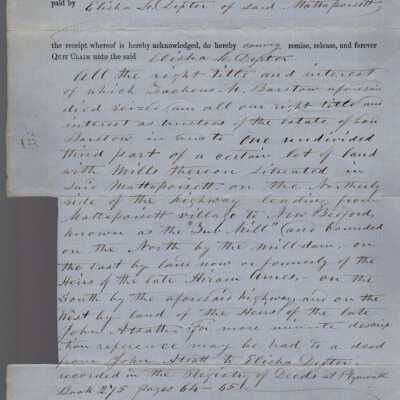 paid by Elisha L. Dexter of said Mattapoisett
the receipt whereof is hereby acknowledged, do hereby convey remise, release, and forever
QUIT CLAIM unto the said Elisha L. Dexter
All the right title and interest
of which Zacheus M. Barstow aforesaid
died seized (and all our right title and
interest as trustees of the estate of said
Barstow in and to one undivided
third part of a certain lot of land
with Mills thereon situated in
said Mattapoisett on the Northerly
side of the highway leading from
Mattapoisett village to New Bedford,
known as the "Tub Mill" and bounded
on the North by the mill dam, on
the East by land now or formerly of the
Heirs of the late Hiram Ames, on the
South by the aforesaid highway, and on the
West by land of the Heirs of the late
John Atsatt; for more minute descrip
tion reference may be had to a deed
from John Atsatt to Elisha Dexter
recorded in the Registry of Deeds at Plymouth
Book 275 pages 64 - 65.